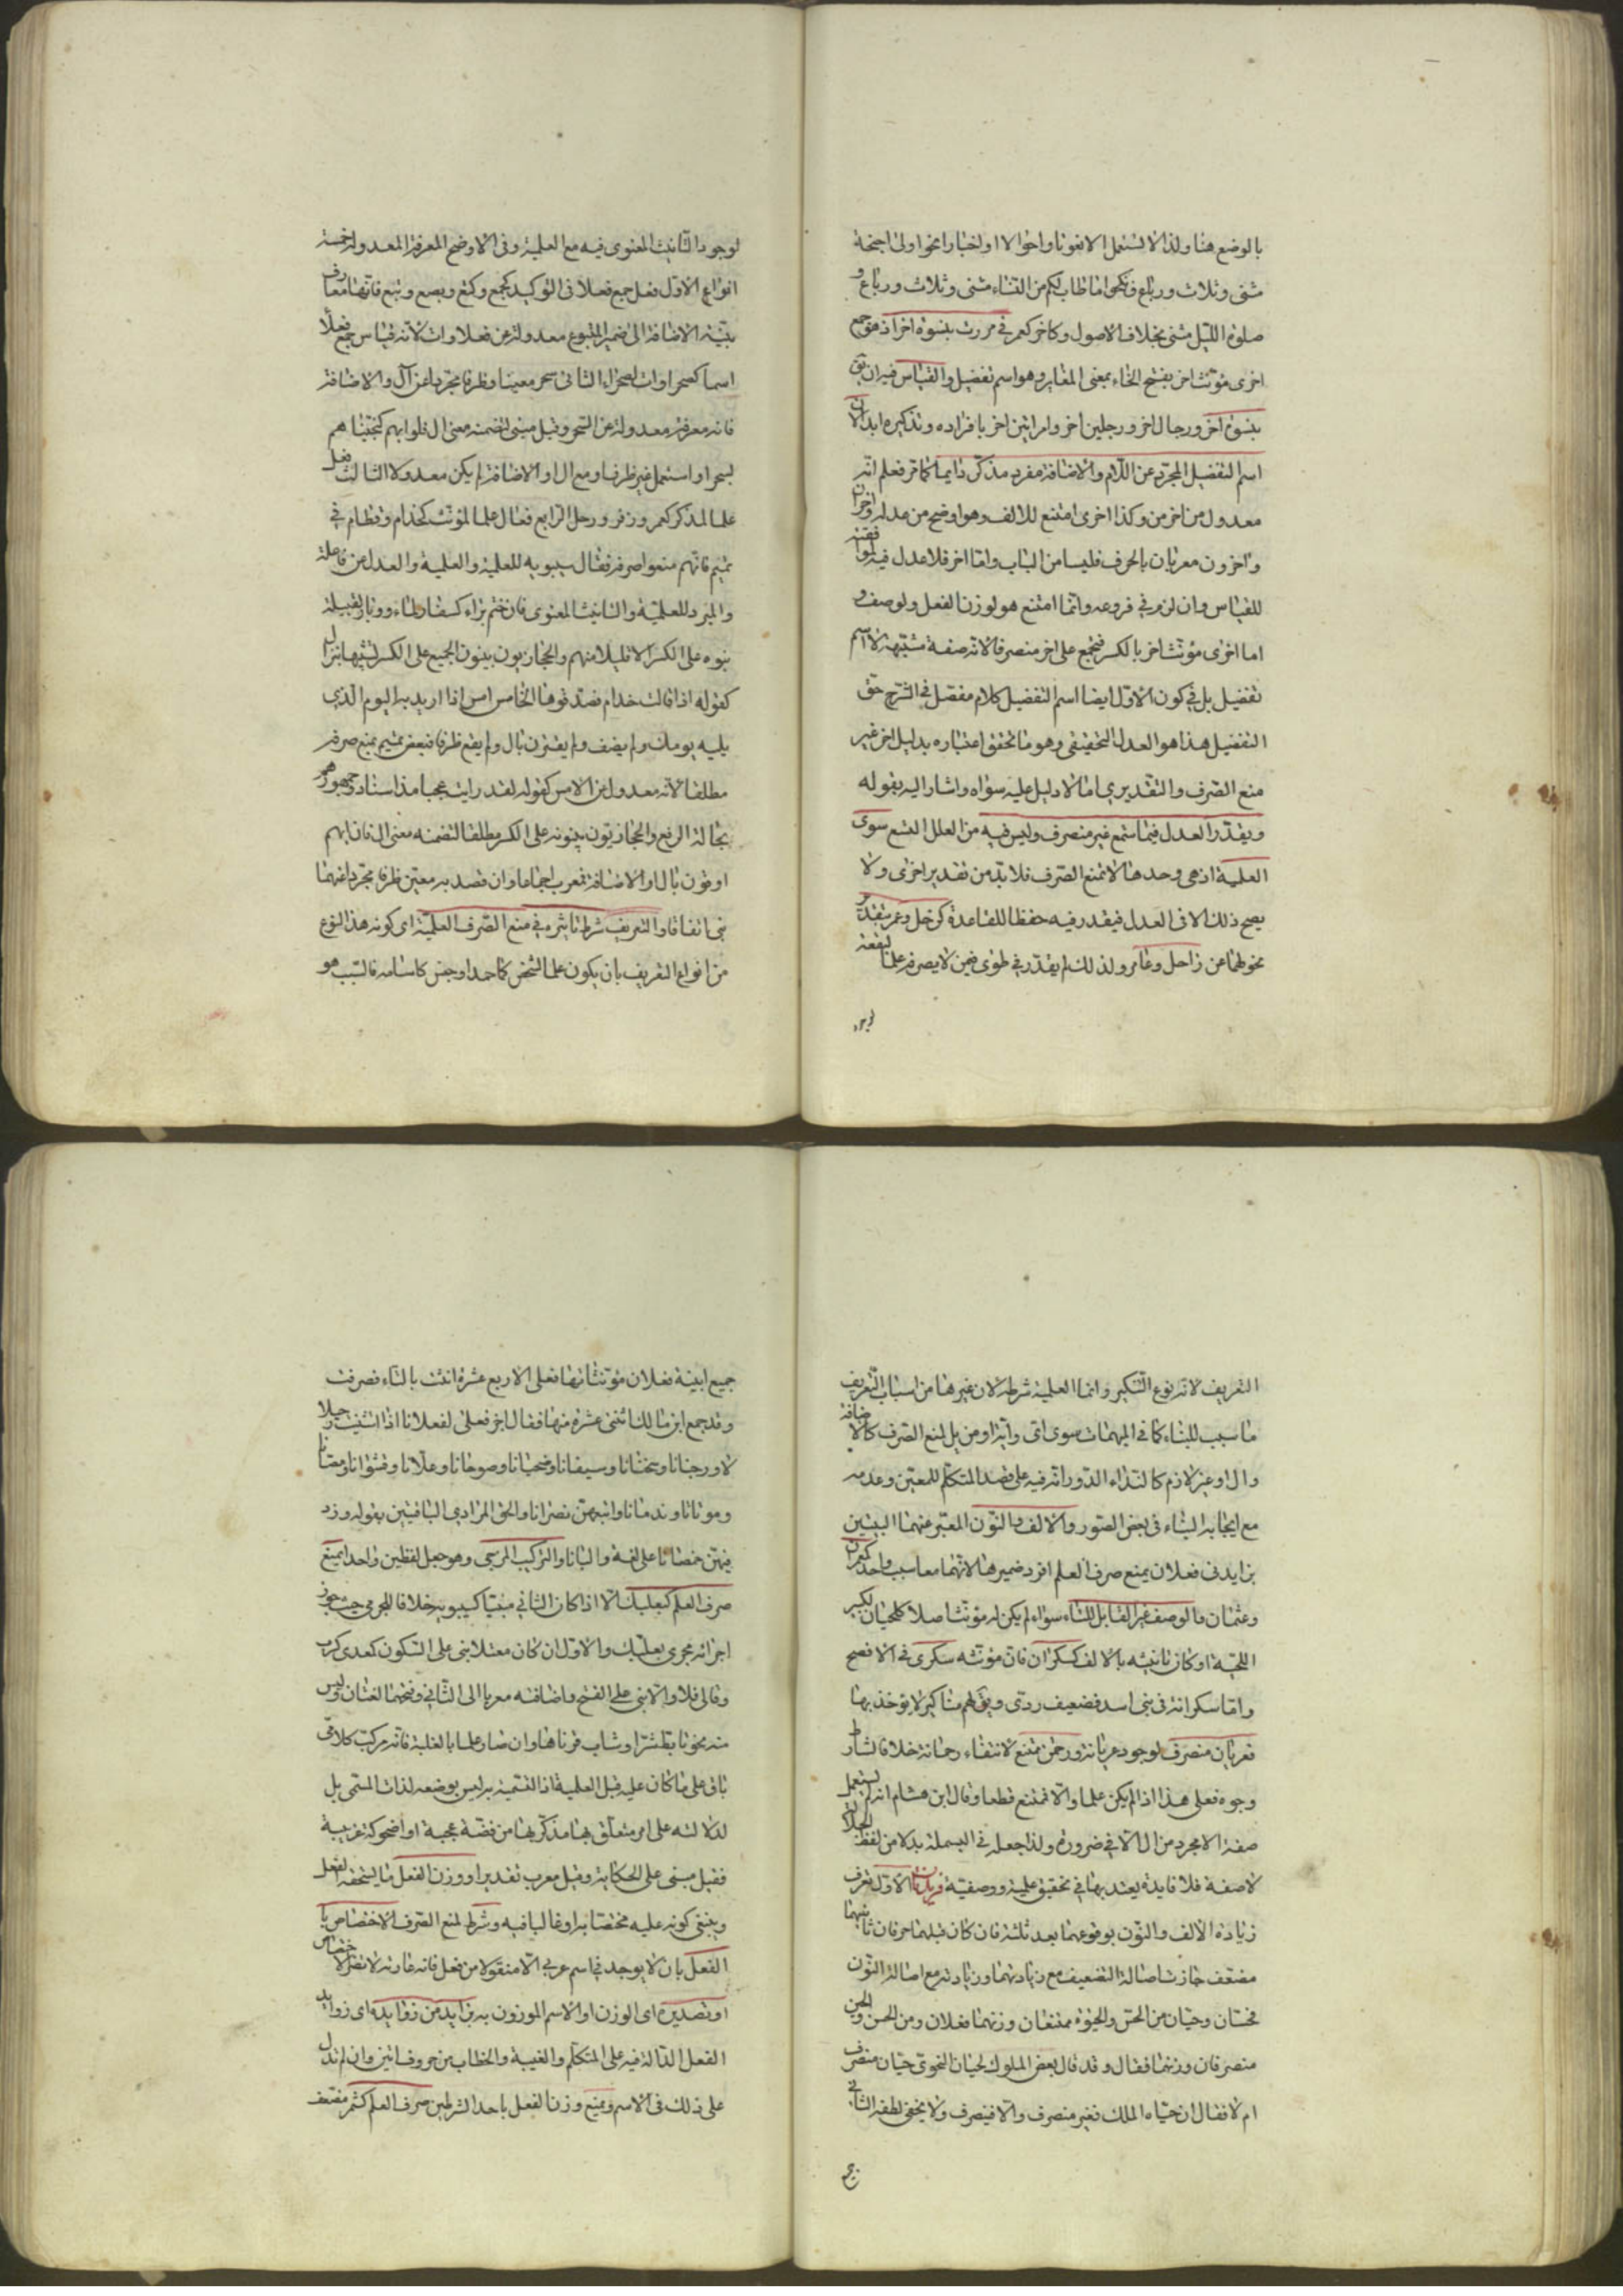 بالوضع هنا ولذا لا تستعمل الا نعوتا واحوالا او اخبارا نحو اولى اجنحة
مثنى وثلاث ورباع وفانكحوا ما طاب لكم من النساء مثنى وثلاث ورباع و
صلوة الليل مثنى بخلاف الاصول وكاخر كعمر في مررت بنسوة اخر اذ هو جمع
اخرى مؤنث اخر بفتح الخاء بمعنى المغاير وهو اسم تفضيل والقياس فيه ان يق
بنسوة اخر ورجال اخر ورجلين اخر وامراتين اخر بافراده وتذكيره ابدا لان
اسم التفضيل المجرد عن اللام والاضافة مفرد مذكر دايما كما مر فعلم انه
معدول من اخر من وكذا اخرى امتنع للالف وهو اوضح من عدله واخران
واخرون معربان بالحرف فليسا من الباب واما اخر فلا عدل فيه لموافقته
للقياس وان لزم في فروعه وانما امتنع هو لوزن الفعل ولوصف و
اما اخرى مؤنث اخر بالكسر فتجمع على اخر منصرفا لانه صفة مشبهة لا اسم
تفضيل بل في كون الاول ايضا اسم التفضيل كلام مفصل في الشرح حق
التفضيل هذا هو العدل التحقيقي وهو ما تحقق اعتباره بدليل اخر غير
منع الصرف والتقديري اما لا دليل عليه سواه واشار اليه بقوله
ويقدر العدل فيما سمع غير منصرف وليس فيه من العلل التسع سوى
العلمية اذ هي وحدها لا تمنع الصرف فلا بد من تقدير اخرى ولا
يصح ذلك الا في العدل فيقدر فيه حفظا للقاعدة كزحل وعمر بتقدير
تحولهما عن زاحل وعامر ولذلك لم يقدر في طوى فيمن لا يصرفه علما لبقعة
لوجود
لوجود التانيث المعنوى فيه مع العلمية وفى الاوضح المعرفة المعدولة خمسة
انواع الاول فعل جمع فعلاء فى التوكيد كجمع وكتع وبصع وبتع فانها معارف
بنية الاضافة الى ضمير المتبوع معدولة عن فعلاوات لانه قياس جمع فعلاء
اسما كصحراوات لصحراء الثانى سحر معينا وظرفا مجردا عن آل والاضافة
فانه معرفة معدولة عن السحر وقيل مبنى لتضمنه معنى ال فلو ابهم كنجيناهم
بسحر او استعمل غير ظرف او مع ال او الاضافة لم يكن معدولا الثالث فعل
علما لمذكر كعمر وزفر وزحل الرابع فعال علما لمؤنث كحذام وقطام في
تميم فانهم منعوا صرفه فقال سيبويه للعلمية والعدل عن فاعلة
والمبرد للعلمية والتانيث المعنوى فان ختم براء كسفار لماء ووبار لقبيلة
بنوه على الكسر الا قليلا منهم والحجازيون يبنون الجميع على الكسر لشبهها بنزال
كقوله اذا قالت حذام فصدقوها الخامس امس اذا اريد به اليوم الذي
يليه يومك ولم يضف ولم يقترن بال ولم يقع ظرفا فبعض تميم يمنع صرفه
مطلقا لانه معدول عن الامس كقوله لقد رايت عجبا مذ امسا وجمهورهم
بحالة الرفع والحجازيون يبنونه على الكسر مطلقا لتضمنه معنى ال فان ابهم
او قرن بال او الاضافة معرب اجماعا وان قصد به معين ظرفا مجردا عنهما
بنى اتفاقا والتعريف شرط تاثيره في منع الصرف العلمية اى كونه هذا النوع
من انواع التعريف بان يكون علما لشخص كاحمد او جنس كاسامة فالسبب هو
التعريف لانه نوع التنكير وانما العلمية شرطه لان غيرها من اسباب التعريف
ما سبب للبناء كما في المبهمات سوى اى واية او مزيل لمنع الصرف كالاضافة
وال او غير لازم كالنداء الدورانه فيه على قصد المتكلم للمعين وعدمه
مع ايجابه البناء فى بعض الصور والالف والنون المعبر عنهما
بزايدى فعلان يمنع صرف العلم افرد ضميرها لانهما معا سبب واحد كعمران
وعثمان والوصف غير القابل للتاء سواء لم يكن له مؤنث اصلا كلحيان لكبير
اللحية او كان تانيثه بالالف كسكران فان مؤنثه سكرى في الافصح
واما سكرانة فى بنى اسد فضعيف ردى ويق لهم مناكير لا يؤخذ بها
فعريان منصرف لوجود عريانة ورحمن ممتنع لانتفاء رحمانة خلافا لشارط
وجود فعلى هذا اذا لم يكن علما والا فممتنع قطعا وقال ابن هشام انه لم يستعمل
صفة الا مجرد من ال الا في ضرورة ولذا جعله في البسملة بدلا من لفظ الجلالة
لا صفة فلا فايدة يعتد بها في تحقيق علمية ووصفية فريدتان الاول تعرف
زيادة الالف والنون بوقوعهما بعد ثلثة فان كان قبلهما حرفان ثانيهما
مضعف جازت اصالة التضعيف مع زيادتهما وزيادته مع اصالة النون
فحسان وحيان من الحس والحيوة ممتنعان وزنهما فعلان ومن الحسن والحين
منصرفان وزنهما فعال وقد قال بعض الملوك لحيان النحوى حيان منصرف
ام لا فقال ان حياه الملك فغير منصرف والا فينصرف ولا يخفى لطفه الثانى
جميع
جميع ابنية فعلان مؤنثاتها فعلى الا اربع عشرة انثت بالتاء فصرفت
وقد جمع ابن مالك اثنتى عشرة منها فقال اجز فعلى لفعلانا اذا استثنيت حبلانا
ودخنانا وسخنانا وسيفانا وضحيانا وصوحانا وعلانا وقشوانا ومصانا
وموتانا وندمانا واتبعهن نصرانا والحق المرادي الباقيتين بقوله وزد
فيهن خمصانا على لغة واليانا والتركيب المزجى وهو جعل لفظين واحدا يمنع
صرف العلم كبعلبك الا اذا كان الثاني مبنيا كسيبويه خلافا للجرمى حيث جوز
اجرائه مجرى بعلبك والاول ان كان معتلا بنى على السكون كمعدى كرب
وقالى قلا والا بنى على الفتح واضافته معربا الى الثاني وفتحهما لغتان وليس
منه نحو تابط شرا وشاب قرناها وان صار علما بالغلبة فانه مركب كلامى
باق على ما كان عليه قبل العلمية اذ التسمية به ليس بوضعه لذات المسمى بل
لدلالته على امر متعلق بها مذكر بها من قصة عجيبة او اضحوكة غريبة
فقيل مبنى على الحكاية وقيل معرب تقديرا ووزن الفعل ما يستحقه الفعل
وينبغي كونه عليه مختصا به او غالبا فيه وشرط لمنع الصرف الاختصاص با
الفعل بان لا يوجد في اسم عربي الا منقولا من فعل فانه عاريته لا تضر الاختصاص
او تصديره اى الوزن او الاسم الموزون به بزايد من زوايده اى زوايد
الفعل الدالة فيه على المتكلم والغيبة والخطاب من حروف اتين وان لم تدل
على ذلك فى الاسم ويمنع وزن الفعل باحد الشرطين صرف العلم كشمر مضعف